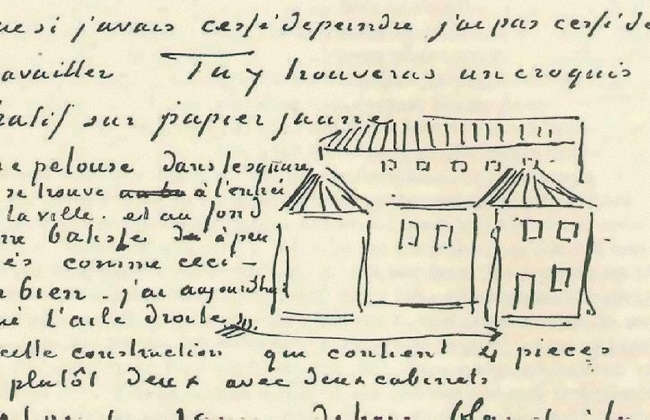 si j'avais cessé de peindre j'ai pas cessé de
availler Tu y trouveras un croquis
ratif sur papier jaune
e pelouse dans le square
se trouve à l'entrée
la ville. et au fond
ne batisse à peu
ès comme ceci -
bien. j'ai aujourd'hui
l'aile droite
cette construction qui contient 4 pieces
plutôt deux avec deux cabinets